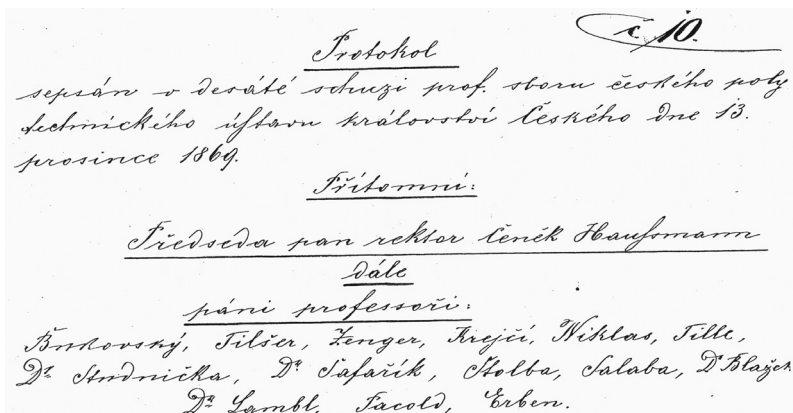 č 10.
Protokol
sepsán v desáté schuzi prof. sboru českého poly
technického ústavu království Českého dne 13.
prosince 1869.
Přítomní:
Předseda pan rektor Čeněk Haussmann
dále
páni professoři:
Bukovský, Tilšer, Zenger, Krejčí, Niklas, Tille,
Dr. Studnička, Dr. Šafařík, Štolba, Salaba, Dr Blažek
Dr. Lambl, Jacold, Erben.